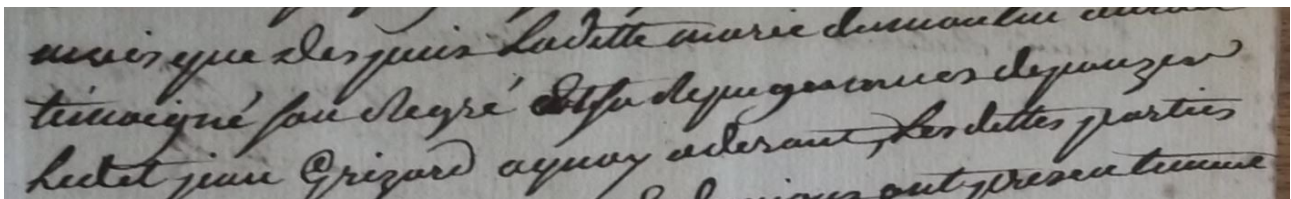 mais que despuis Ladette marie dumoulin
témoigné son regré Et sa repugnances de pouzer
Ledet jean Grizard a quoy aderant, Les dettes parties
ont presentement